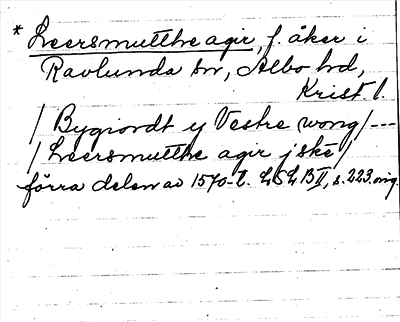 * Leersmutthe agir, f. åker i
Ravlunda sn, Albo hd,
Krist l.
/ Bygiordt ij Vestre wong / ---
/ Leersmutthe agir j skè /
förra delen av 1570-t. LSLB II, s. 223. orig.